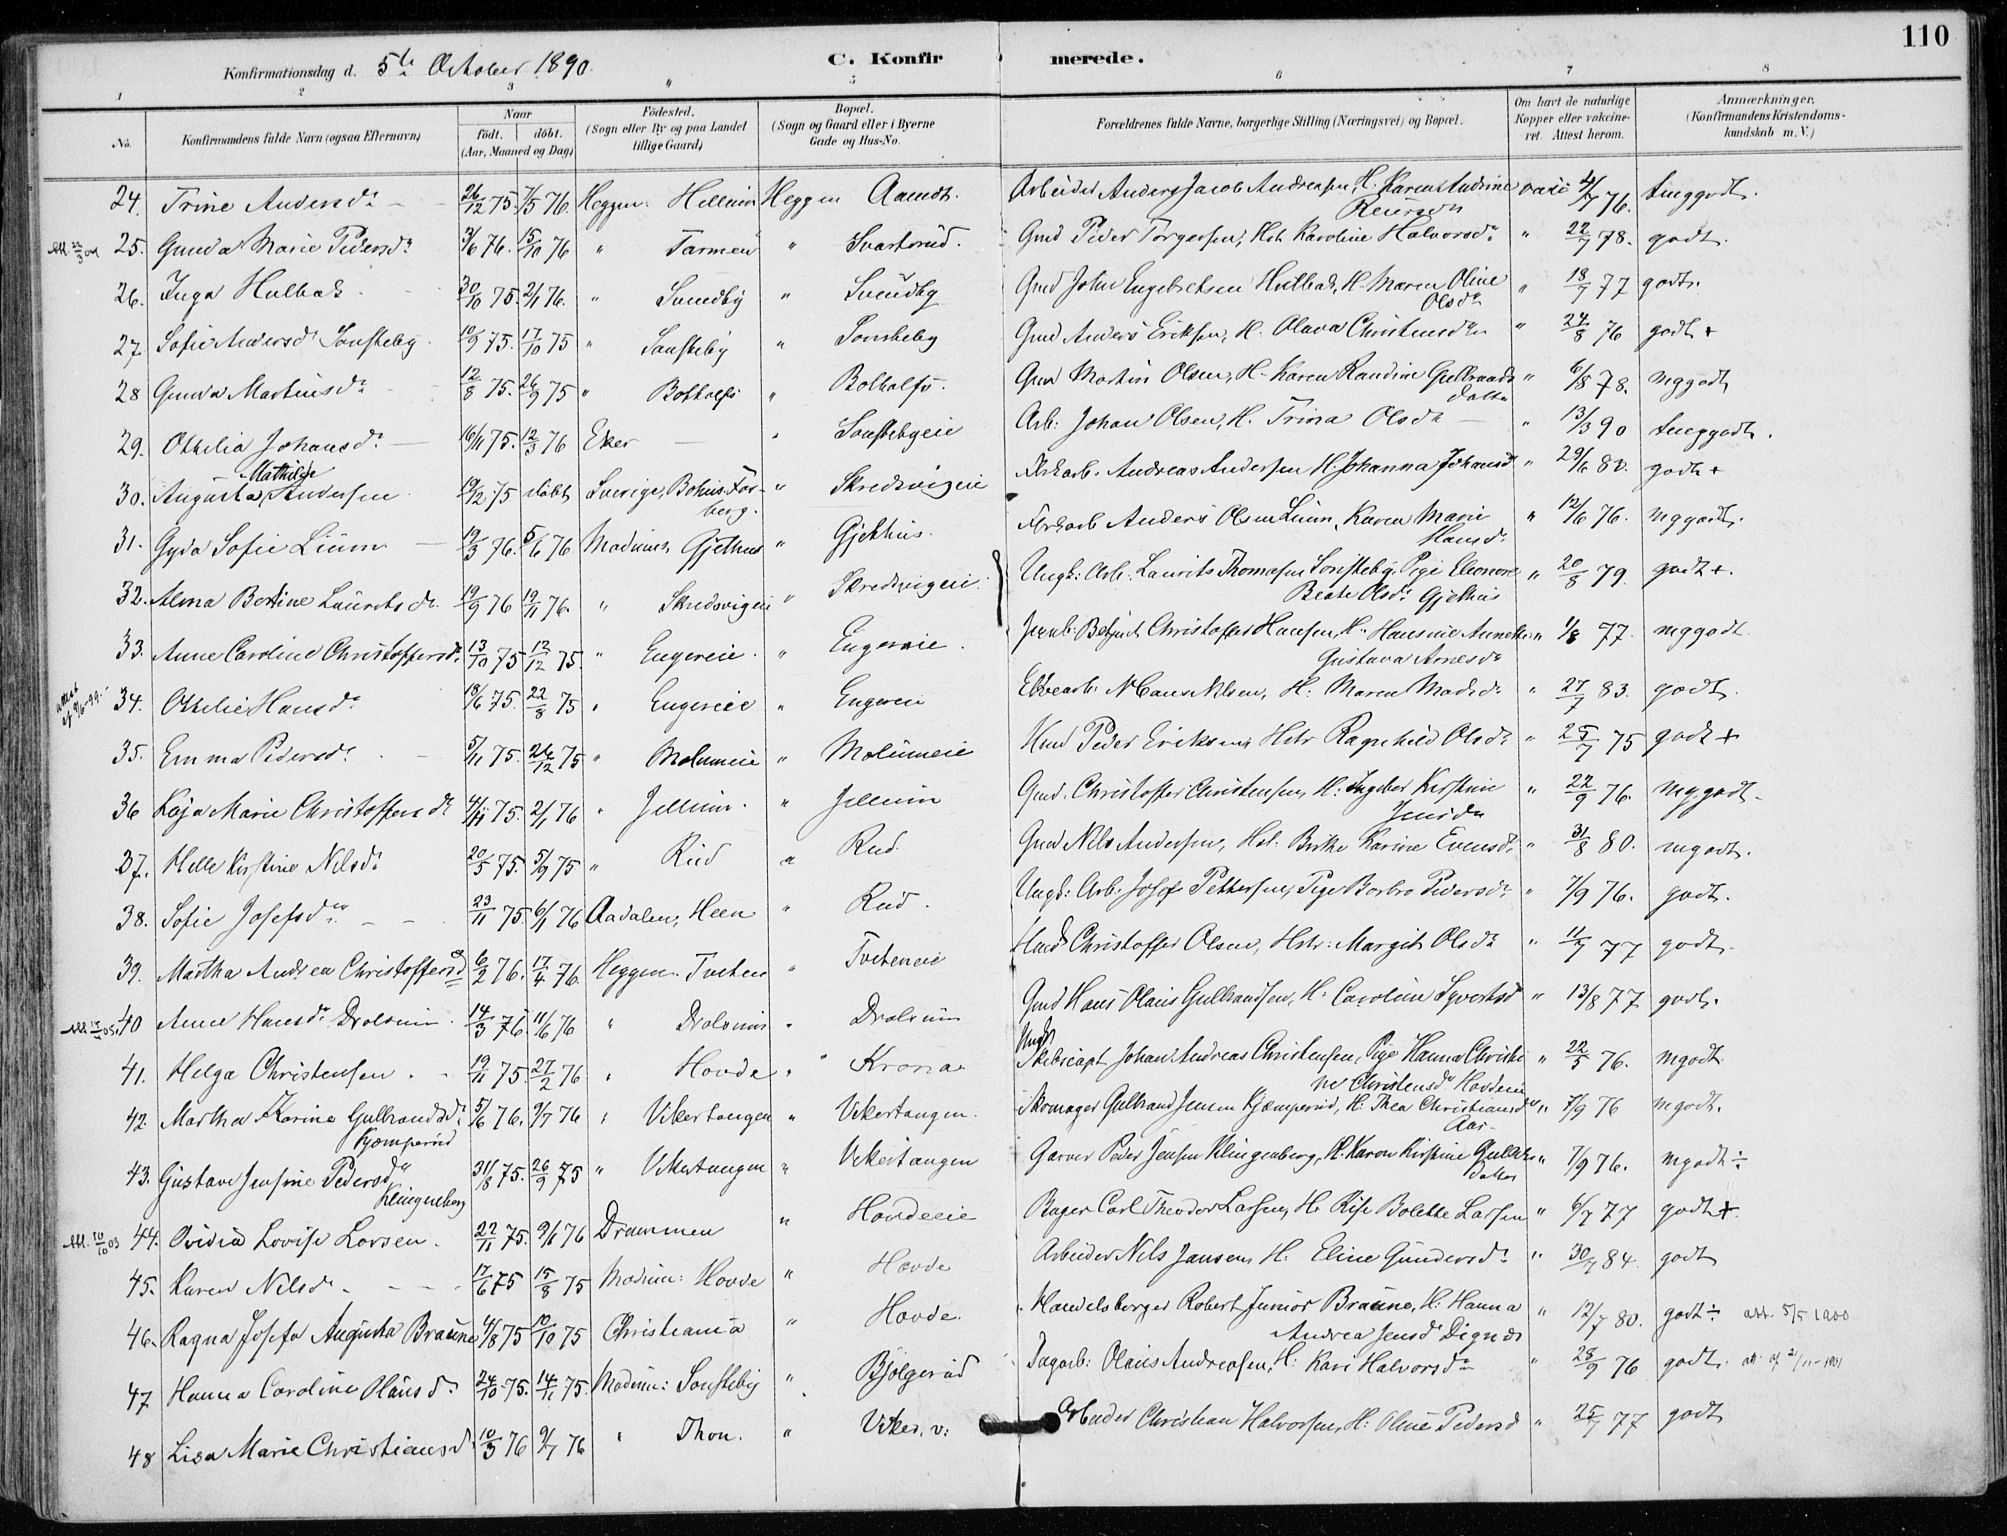 110
Konfirmationsdag d. 5te October 1890.
C. Konfirmerede.
1 2 3 4 5 6 7 8
No.
Konfirmandens fulde Navn (ogsaa Efternavn)
Naar
født. døbt.
(Aar, Maaned og Dag)
Fødested.
(Sogn eller By og paa Landet
tillige Gaard)
Bopæl.
(Sogn og Gaard eller i Byerne
Gade og Hus-No.
Forældrenes fulde Navne, borgerlige Stilling (Næringsvei) og Bopæl.
Om havt de naturlige
Kopper eller vakcine-
ret. Attest herom.
Anmærkninger.
(Konfirmandens Kristendoms-
kundskab m. V.)
24. Trine Andersdr 26/12 75. 7/5 76. Heggen: Hellum Heggen Aamdt. Arbeider Anders Jacob Andreasen, H. Karen Andrine Reiersen vacc 4/7 76. tmggodt.
25. Gunda Marie Pedersdr 3/6 76. 15/10 76 " Tarmen " Svartorud. Gmd Peder Torgersen, Hst. Karoline Halvorsdr " 22/7 78. godt.
26. Inga Hulbak 30/10 75. 2/1 76. " Svendby " Svendby Gmd Johan Engebretsen Hulbak, H. Maren Oline Olsdr " 18/7 77 godt.
27. Sofie Andersdr Sønsteby 10/9 75. 17/10 75 " Sønsteby " Sønsteby Gmd Anders Eriksen, H. Olava Christensdr " 24/8 76 godt +
28 Gunda Martinsdr 12/8 75. 26/9 75 " Bottolfs " Bottolfs. Gmd Martin Olsen, H. Karen Randine Gulbrandsdatter " 6/8 78. mggodt
29. Othilia Johansdr 16/11 75. 12/3 76 Eker " Sønstebyeie Arb: Johan Olsen, H. Trina Olsdr " 13/3 90 tmggodt.
30. Augusta Mathilde Andersen 19/12 75 døbt Sverige, Bohus. Forberg. " Skredsvigeie Andreas Andersen H. Johanna Johansd " 29/6 80. godt +
31. Gyda Sofie Lium 19/3 76. 5/6 76 Modum, Gjethus " Gjethus. Anders Olsen Lium, Karen Marie Hansdr " 12/6 76. mggodt.
32. Alma Bertine Lauritsdr 19/9 76 19/11 76. " Skredsvigeie " Skredsvigeie. Ungk: Arb. Laurits Thomasen Sønsteby, Pige Eleonore Beate Olsdr Gjethus " 20/8 79. godt +.
33. Anne Caroline Christoffersdr 13/10 75 12/12 75. " Engereie. " Engereie. Betjent Christoffer Hansen, H. Hansine Annette Gustava Arnesdr " 1/8 77. mggodt
34. Othelie Hansdr 18/6 75. 22/8 75 " Engereie " Engereie H: Maren Madsdr " 27/7 83. godt.
35. Emma Pedersdr 5/11 75. 26/12 75 " Molumeie " Molumeie Hmd Peder Eriksen, Hstr Ragnhild Olsdr " 25/7 75 godt +
36 Kaja Marie Christoffersdr 4/11 75. 2/1 76 " Jellum. " Jellum Gmd. Christoffer Christensen, H. Ingebor Kirstine Jensdr " 22/9 76. mggodt.
37. Helle Kirstine Nilsdr 20/5 75. 5/9 75 " Rud " Rud. Gmd Nils Andersen, Hst. Birthe Karine Evensdr " 31/8 80. mgodt.
38. Sofie Josefsdr 23/11 75. 6/1 76 Aadalen, Heen " Rud. Ungk: Arb. Josef Pettersen, Pige Barbro Pedersdr " 7/9 76. godt.
39. Martha Andrea Christoffersd 6/2 76. 17/4 76. Heggen. Tveten " Tveteneie Hmd Christoffer Olsen, Hstr: Margit Olsdr " 11/9 77 godt.
40 Anne Hansdr Drolsum 14/3 76. 11/6 76 " Drolsum " Drolsum Gmd Hans Olaus Gulbrandsen, H. Caroline Syvertsd " 13/8 77 godt.
41. Helga Christensen 19/11 75. 27/2 76 " Hovde " Krona Ungk. Skibscapt. Johan Andreas Christensen, Pige Hanna Christine Christensdr Hovdeeie " 22/5 76. mgodt.
42. Martha Karine Gulbrandsdr Kjemperud 5/6 76. 9/7 76 " Vikertangen " Vikertangen. Skomager Gulbrand Jensen Kjemperud, H: Thea Christiansdr " 7/9 76 mgodt.
43. Gustava Jensine Pedersdr Klingenberg 31/8 75. 26/9 75 " Vikertangen " Vikertangen Garver Peder Jensen Klingenberg, H. Karen Kirstine Gulbrs Datter " 7/9 76. mgodt ÷
44. Ovidia Lovise Larsen. 22/11 75. 9/1 76 Drammen " Hovdeeie Bager Carl Theodor Larsen, H. Rise Bolette Larsen " 6/7 77 godt +
45. Karen Nilsdr 17/6 75 15/8 75 Modum: Hovde " Hovde Arbeider Nils Jansen, H: Eline Gundersdr " 30/7 84. godt
46. Ragna Josefa Augusta Braune 4/8 75 10/10 75 Christiania " Hovde. Handelsborger Robert Junior Braune, H: Hanna Andrea Jensdr Dignæs " 12/7 80. godt ÷ att. 5/5 1900
47 Hanna Caroline Olausdr 24/10 75. 14/11 75. Modum: Sønsteby " Bjølgerud Dagarb: Olaus Andreasen, H: Kari Halvorsdr " 28/9 76 godt.
48 Lisa Marie Christiansd 10/3 76 9/7 76 " Thon. " Viker, v: Arbeider Christian Halvorsen, H: Oline Pedersd " 25/7 77 godt